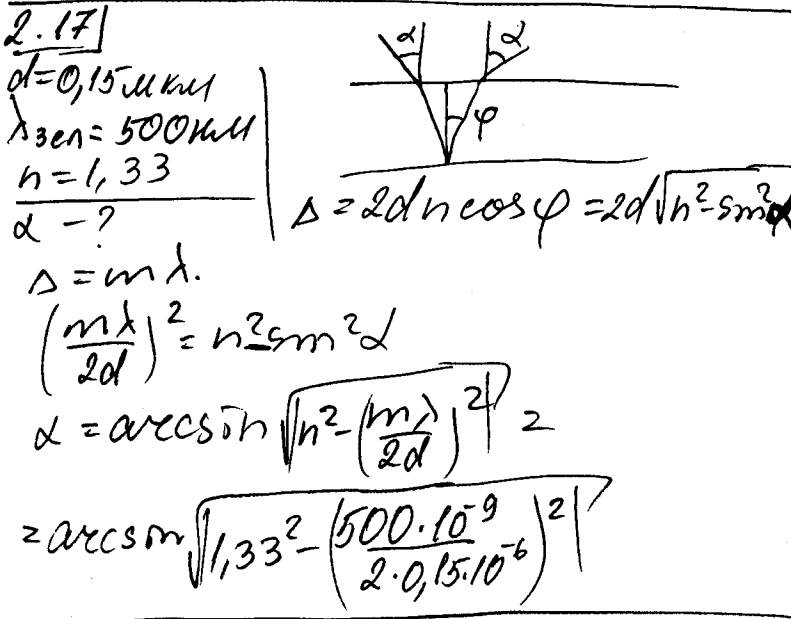 2.17
α α
d=0,15 мкм
λзел = 500 нм
φ
n = 1,33
α - ?
Δ = 2dn cos φ = 2d√n²-sin²α
Δ = mλ.
(mλ/2d)² = n²-sin²α
α = arcsin √n²-(mλ/2d)² =
= arcsin √1,33²-(500·10⁻⁹/2·0,15·10⁻⁶)²